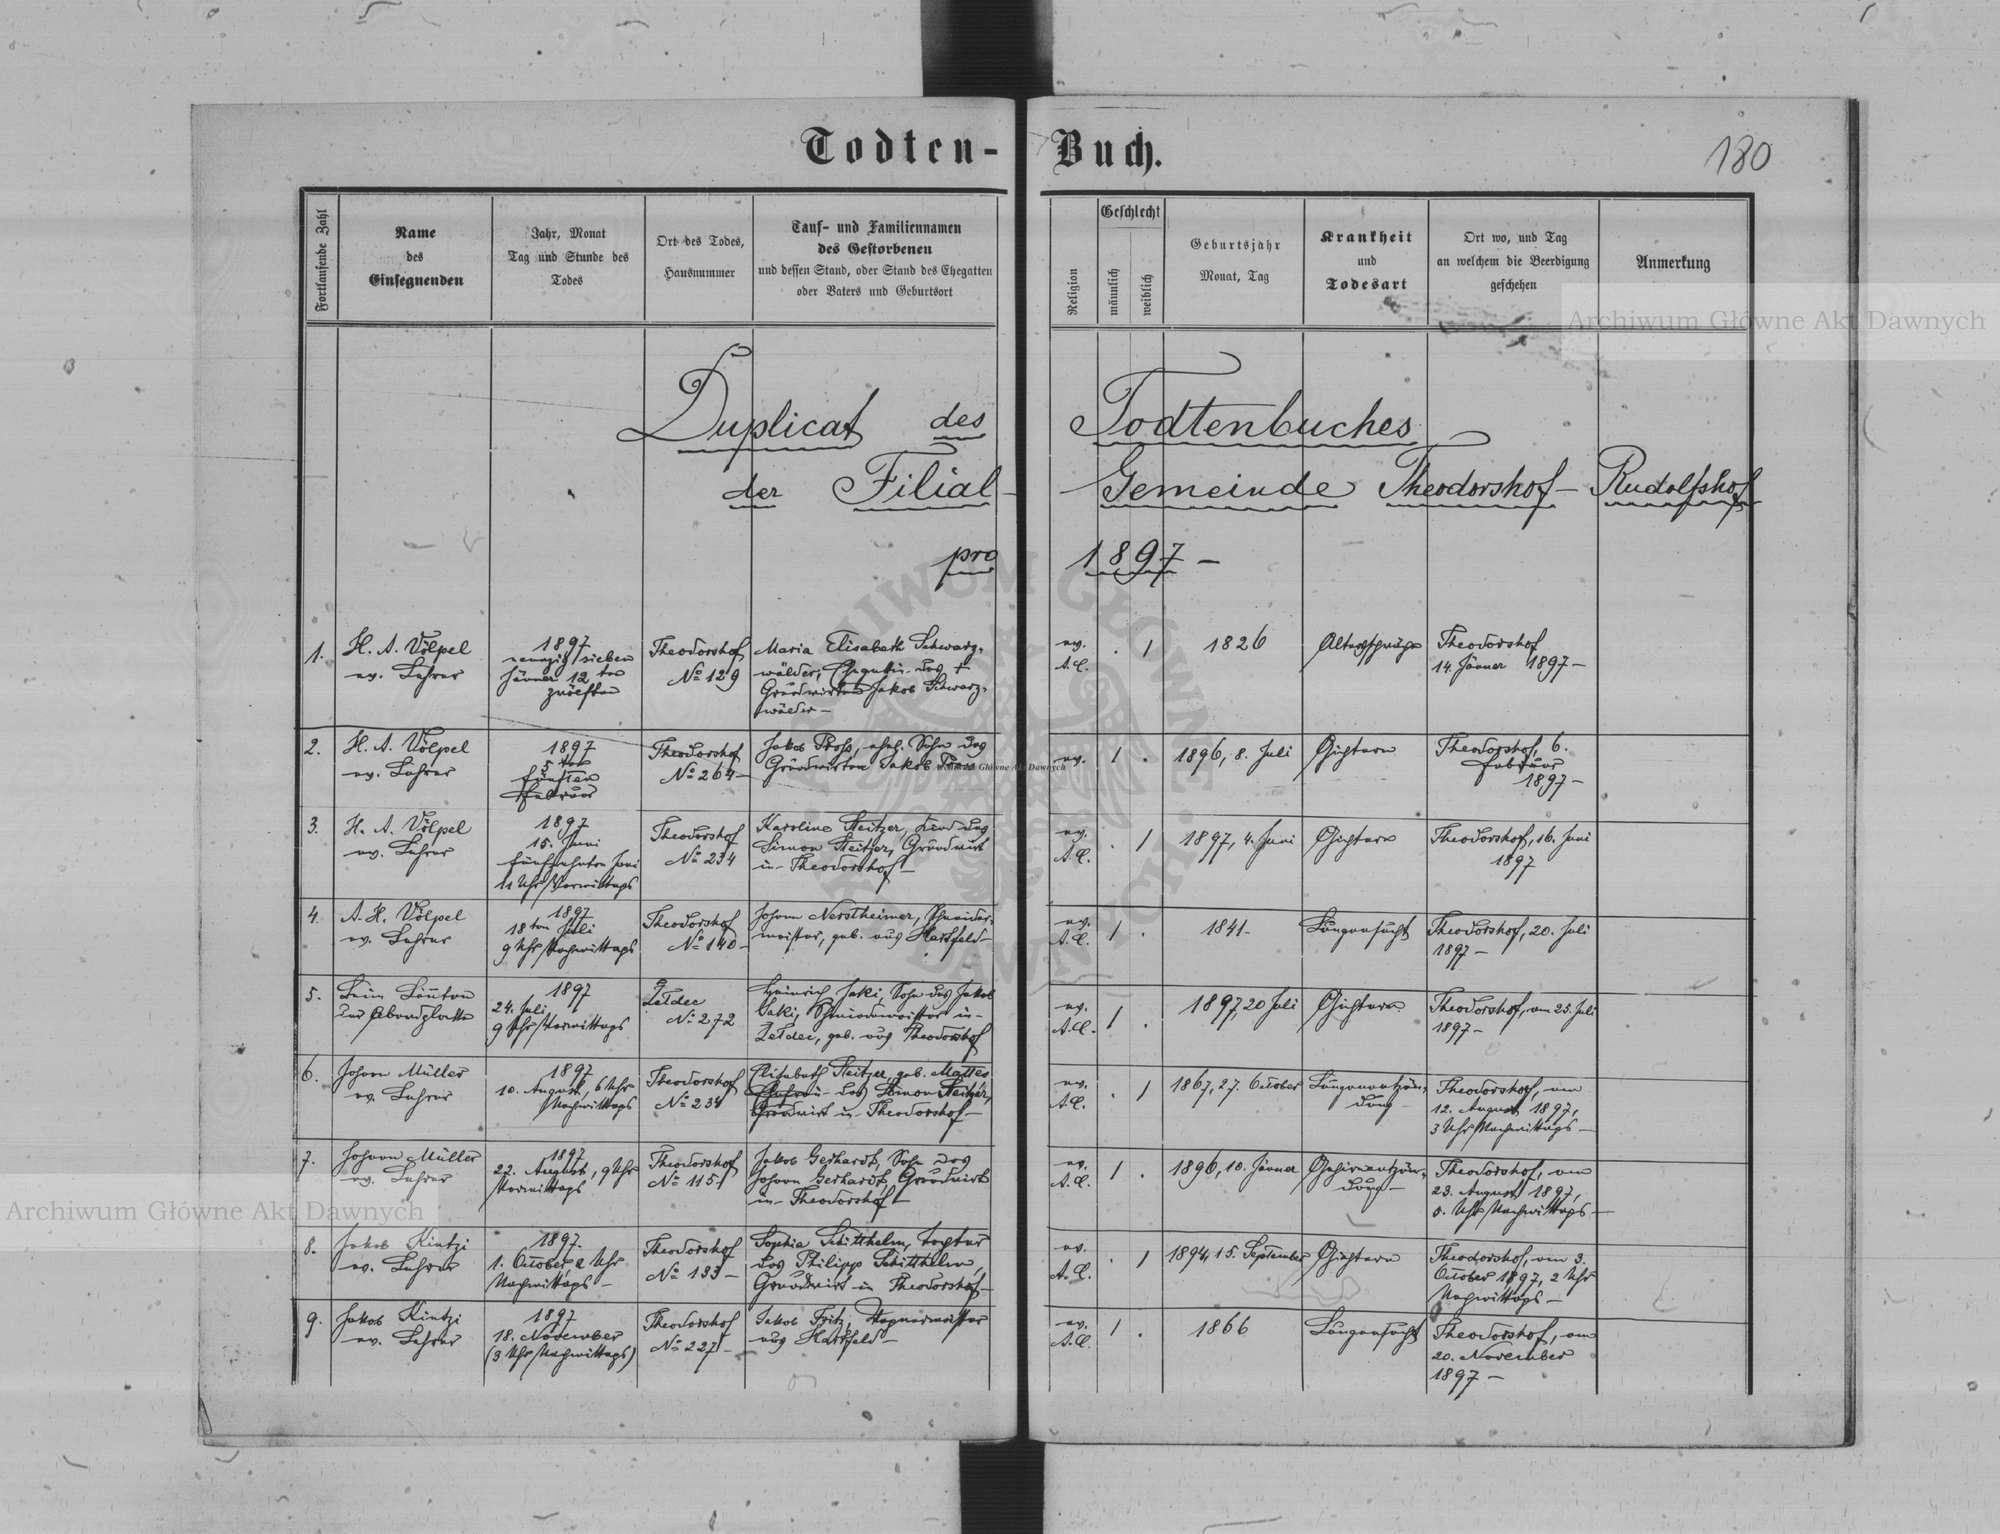 Todten-Buch.
180
Fortlaufende Zahl
Name
des
Einsegnenden
Jahr, Monat
Tag und Stunde des
Todes
Ort des Todes,
Hausnummer
Tauf- und Familiennamen
des Gestorbenen
und dessen Stand, oder Stand des Ehegatten
oder Vaters und Geburtsort
Religion
Geschlecht
männlich
weiblich
Geburtsjahr
Monat, Tag
Krankheit
und
Todesart
Ort wo, und Tag
an welchem die Beerdigung
geschehen
Anmerkung
Archiwum Główne Akt Dawnych
Duplicat des Todtenbuches
der Filial-Gemeinde Theodorshof-Rudolfshof
pro 1897 -
1.
H. A. Völpel
ev. Lehrer
1897
neunzig sieben
Jänner 12ten
zwölften
Theodorshof
No 129
Maria Elisabeth Schwarz-
wälder, Ehegattin des †
Grundwirten Jakob Schwarz-
wälder -
ev.
A. C.
. 1
1826
Altersschwäche
Theodorshof
14. Jänner 1897 -
2.
H. A. Völpel
ev. Lehrer
1897
5ten
fünften
Februar
Theodorshof
No 264 -
Jakob Pross, ehel. Sohn des
Grundwirten Jakob Pross
ev.
1 .
1896, 8. Juli
Gichtern
Theodorshof, 6.
Februar
1897 -
3.
H. A. Völpel
ev. Lehrer
1897
15. Juni
fünfzehnten Juni
11 Uhr Vormittags
Theodorshof
No 234
Karoline Steitzer, Kind des
Simon Steitzer, Grundwirt
in Theodorshof -
ev.
A. C.
. 1
1897, 4. Juni
Gichtern
Theodorshof, 16. Juni
1897
4.
A. H. Völpel
ev. Lehrer
1897
18ten Juli
9 Uhr Nachmittags
Theodorshof
No 140 -
Johann Nerstheimer, Schneider-
meister, geb. aus Hartfeld -
ev.
A. C.
1 .
1841 -
Lungensucht
Theodorshof, 20. Juli
1897 -
5.
Beim Läuten
der Abendglocke
1897
24. Juli
9 Uhr Vormittags
Żełdec
No 272
Heinrich Jaki, Sohn des Jakob
Jaki, Schmiedmeister in
Żełdec, geb. aus Theodorshof
ev.
A. C.
1 .
1897 20 Juli
Gichtern
Theodorshof, am 25. Juli
1897 -
6.
Johann Müller
ev. Lehrer
1897
10. August, 6 Uhr
Nachmittags
Theodorshof
No 234
Elisabeth Steitzer, geb. Mattes
Ehefrau des Simon Steitzer,
Grundwirt in Theodorshof -
ev.
A. C.
. 1
1867, 27. October
Lungenentzün-
dung
Theodorshof, am
12. August 1897,
3 Uhr Nachmittags -
7.
Johann Müller
ev. Lehrer
1897
22. August, 9 Uhr
Vormittags
Theodorshof
No 115
Jakob Gerhardt, Sohn des
Johann Gerhardt, Grundwirt
in Theodorshof -
ev.
A. C.
1 .
1896, 10. Jänner
Gehirnentzün-
dung -
Theodorshof, am
23. August 1897,
Uhr Nachmittags -
8.
Jakob Kintzi
ev. Lehrer
1897.
1. October, 2 Uhr
Nachmittags -
Theodorshof
No 133 -
Sophia Schitthelm, Tochter
des Philipp Schitthelm,
Grundwirt in Theodorshof -
ev.
A. C.
. 1
1894, 15. September
Gichtern
Theodorshof, am 3.
October 1897, 2 Uhr
Nachmittags -
9.
Jakob Kintzi
ev. Lehrer
1897
18. November
(3 Uhr Nachmittags)
Theodorshof
No 227 -
Jakob Fritz, Wagnermeister
aus Hartfeld -
ev.
A. C.
1 .
1866
Lungensucht
Theodorshof, am
20. November
1897 -
Archiwum Główne Akt Dawnych